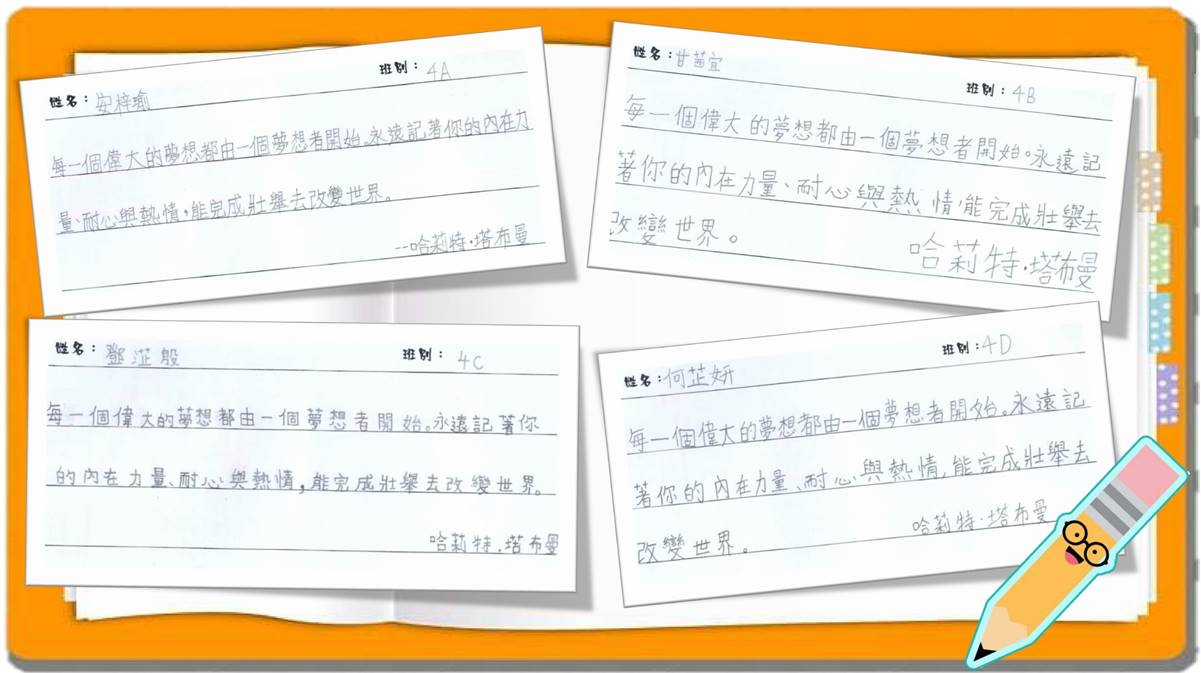 姓名：安梓瑜 班別：4A
每一個偉大的夢想都由一個夢想者開始。永遠記著你的內在力
量、耐心與熱情，能完成壯舉去改變世界。
--哈莉特·塔布曼
姓名：甘茜宜 班別：4B
每一個偉大的夢想都由一個夢想者開始。永遠記
著你的內在力量、耐心與熱情，能完成壯舉去
改變世界。
哈莉特·塔布曼
姓名：鄧芷殷 班別：4C
每一個偉大的夢想都由一個夢想者開始。永遠記著你
的內在力量、耐心與熱情，能完成壯舉去改變世界。
哈莉特·塔布曼
姓名：何芷妍 班別：4D
每一個偉大的夢想都由一個夢想者開始。永遠記
著你的內在力量、耐心與熱情，能完成壯舉去
改變世界。
哈莉特·塔布曼